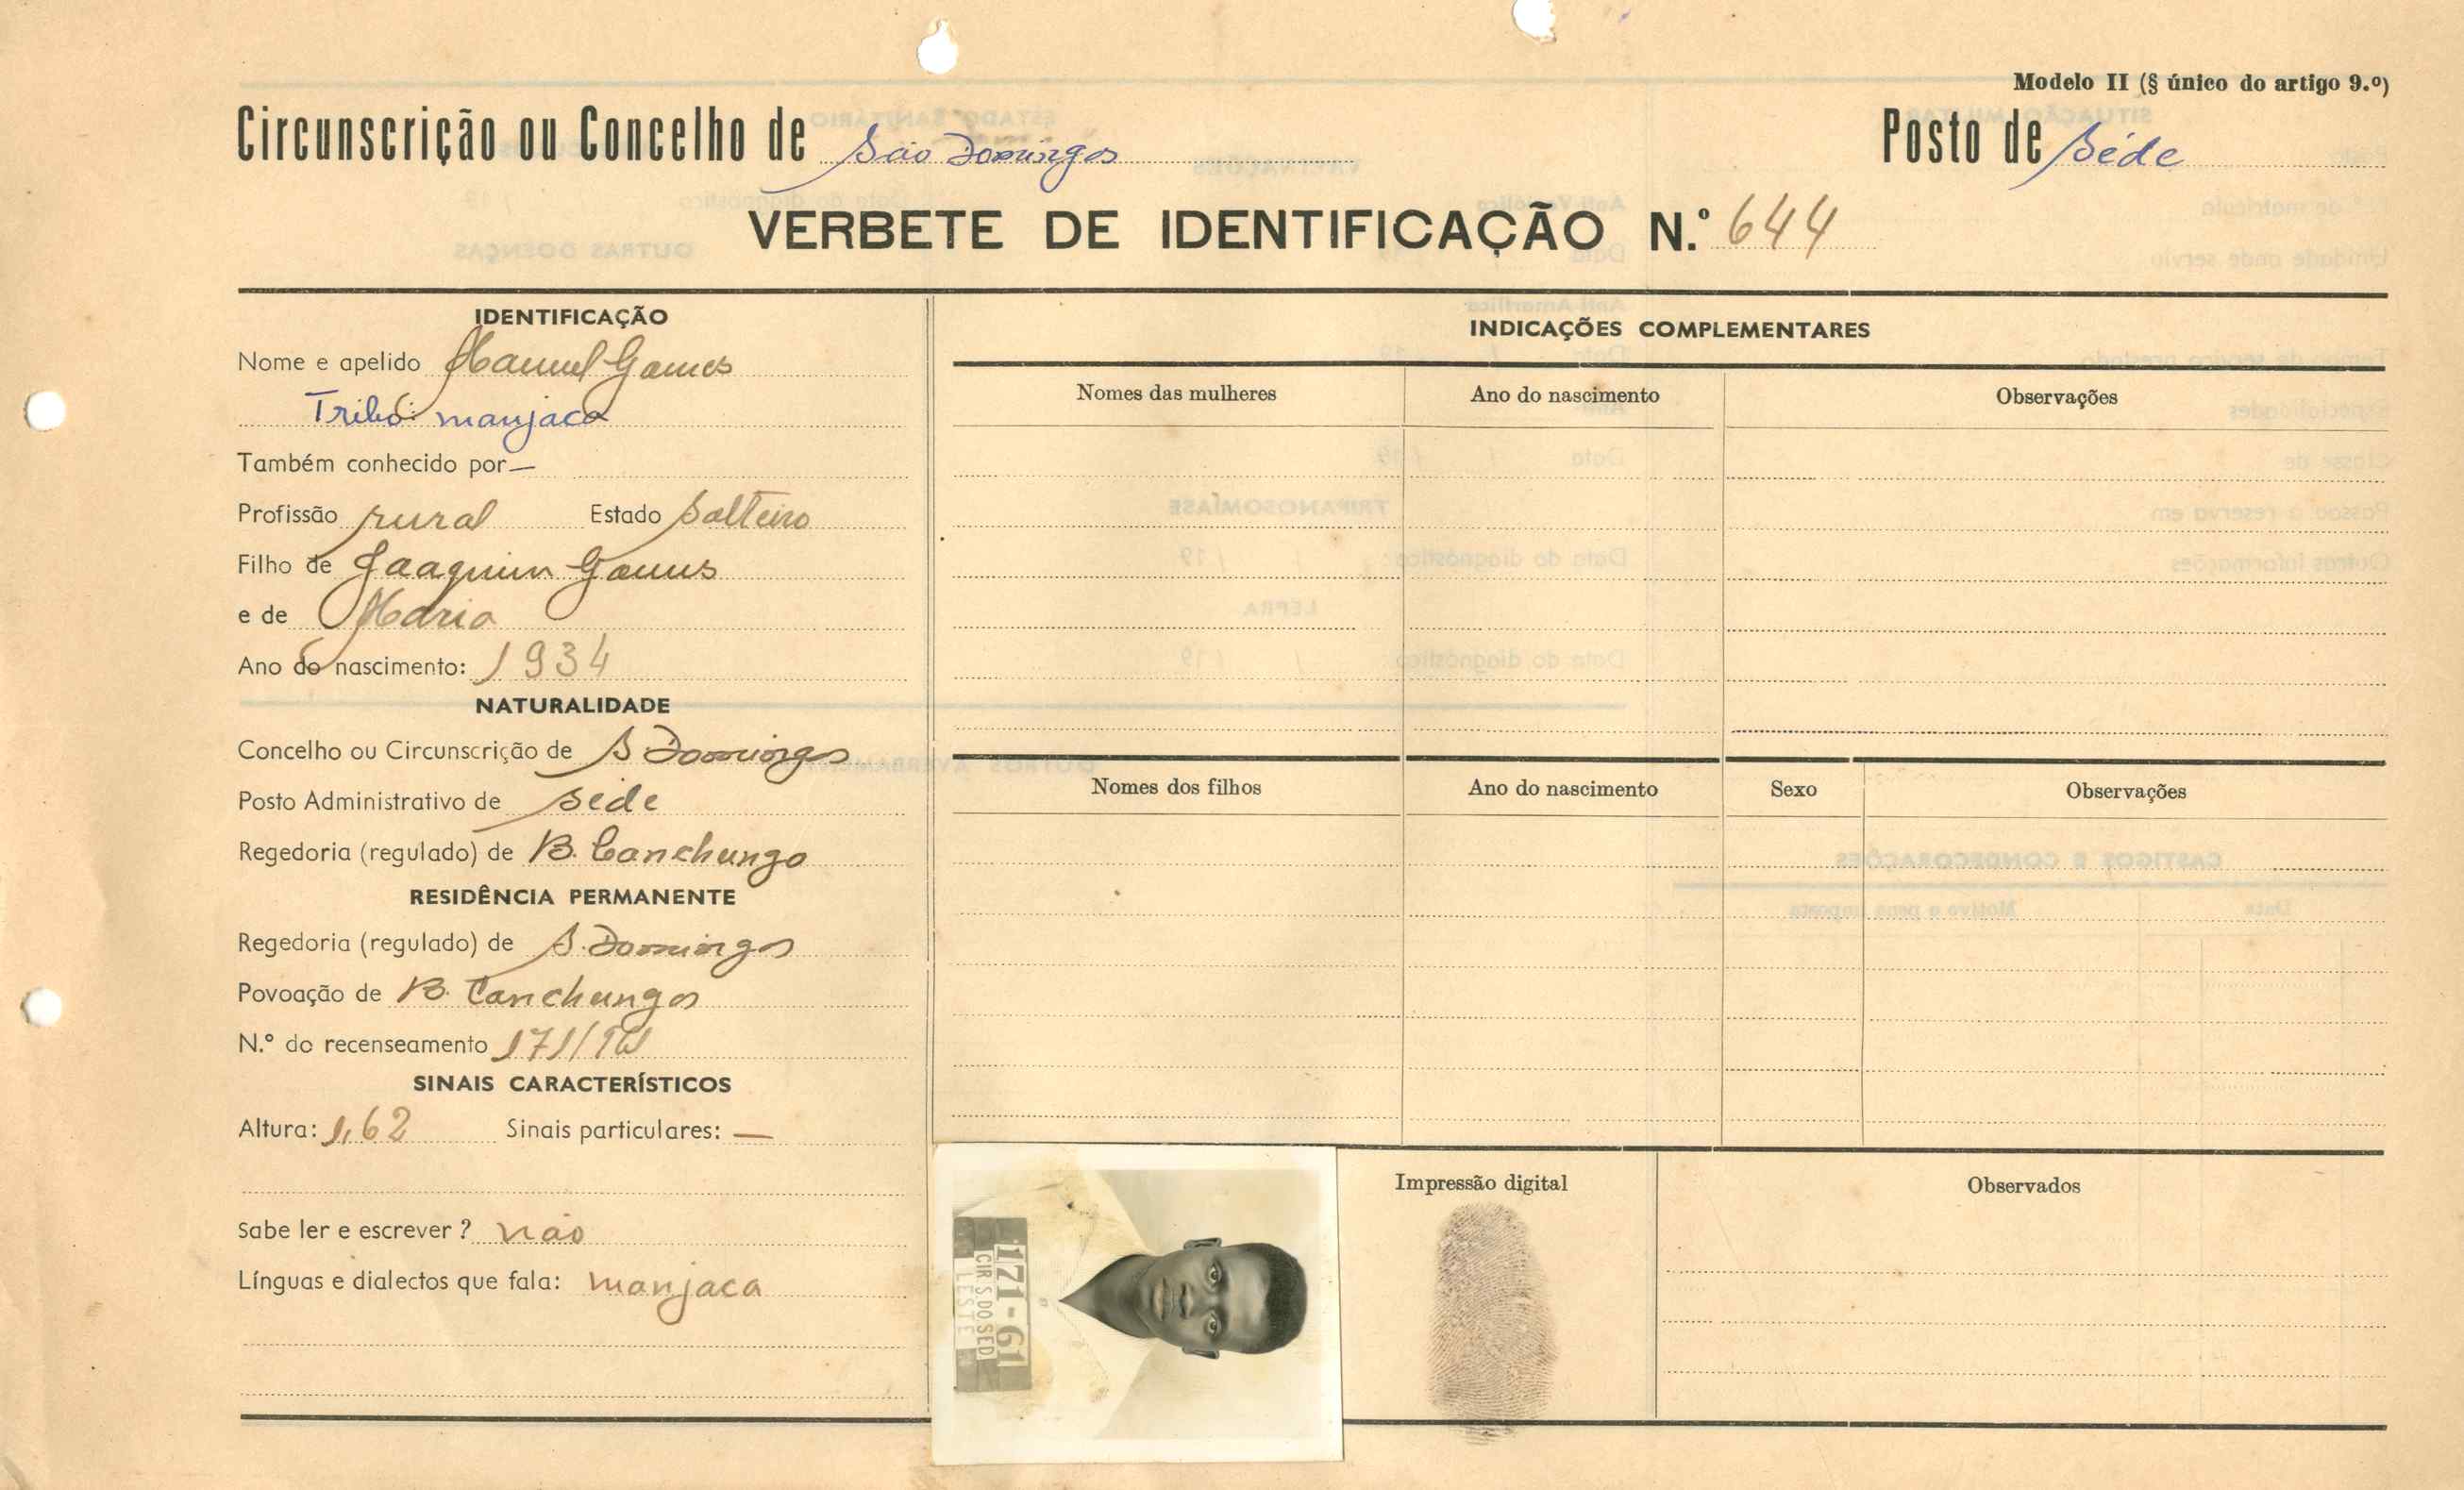 Modelo II (§ único do artigo 9.º)
Circunscrição ou Concelho de São Domingos Posto de Séde
VERBETE DE IDENTIFICAÇÃO N.º 644
IDENTIFICAÇÃO
Nome e apelido Manuel Gomes
Tribó: manjaca
Também conhecido por —
Profissão rural Estado Solteiro
Filho de Joaquim Gomes
e de Maria
Ano do nascimento: 1934
NATURALIDADE
Concelho ou Circunscrição de S Domingos
Posto Administrativo de Séde
Regedoria (regulado) de B. Canchungo
RESIDÊNCIA PERMANENTE
Regedoria (regulado) de S. Domingos
Povoação de B. Canchungo
N.º do recenseamento 171/
SINAIS CARACTERÍSTICOS
Altura: 1,62 Sinais particulares: —
Sabe ler e escrever? não
Línguas e dialectos que fala: manjaca
INDICAÇÕES COMPLEMENTARES
Nomes das mulheres Ano do nascimento Observações
Nomes dos filhos Ano do nascimento Sexo Observações
171-61
CIR S DO SED
LESTE
Impressão digital
Observados